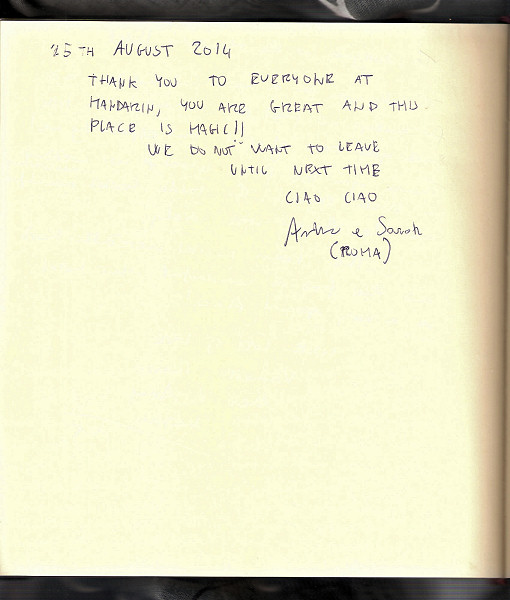 25TH AUGUST 2014
THANK YOU TO EVERYONE AT
MANDARIN, YOU ARE GREAT AND THIS
PLACE IS MAGIC!!
WE DO NOT WANT TO LEAVE
UNTIL NEXT TIME
CIAO CIAO
e Sarah
(ROMA)